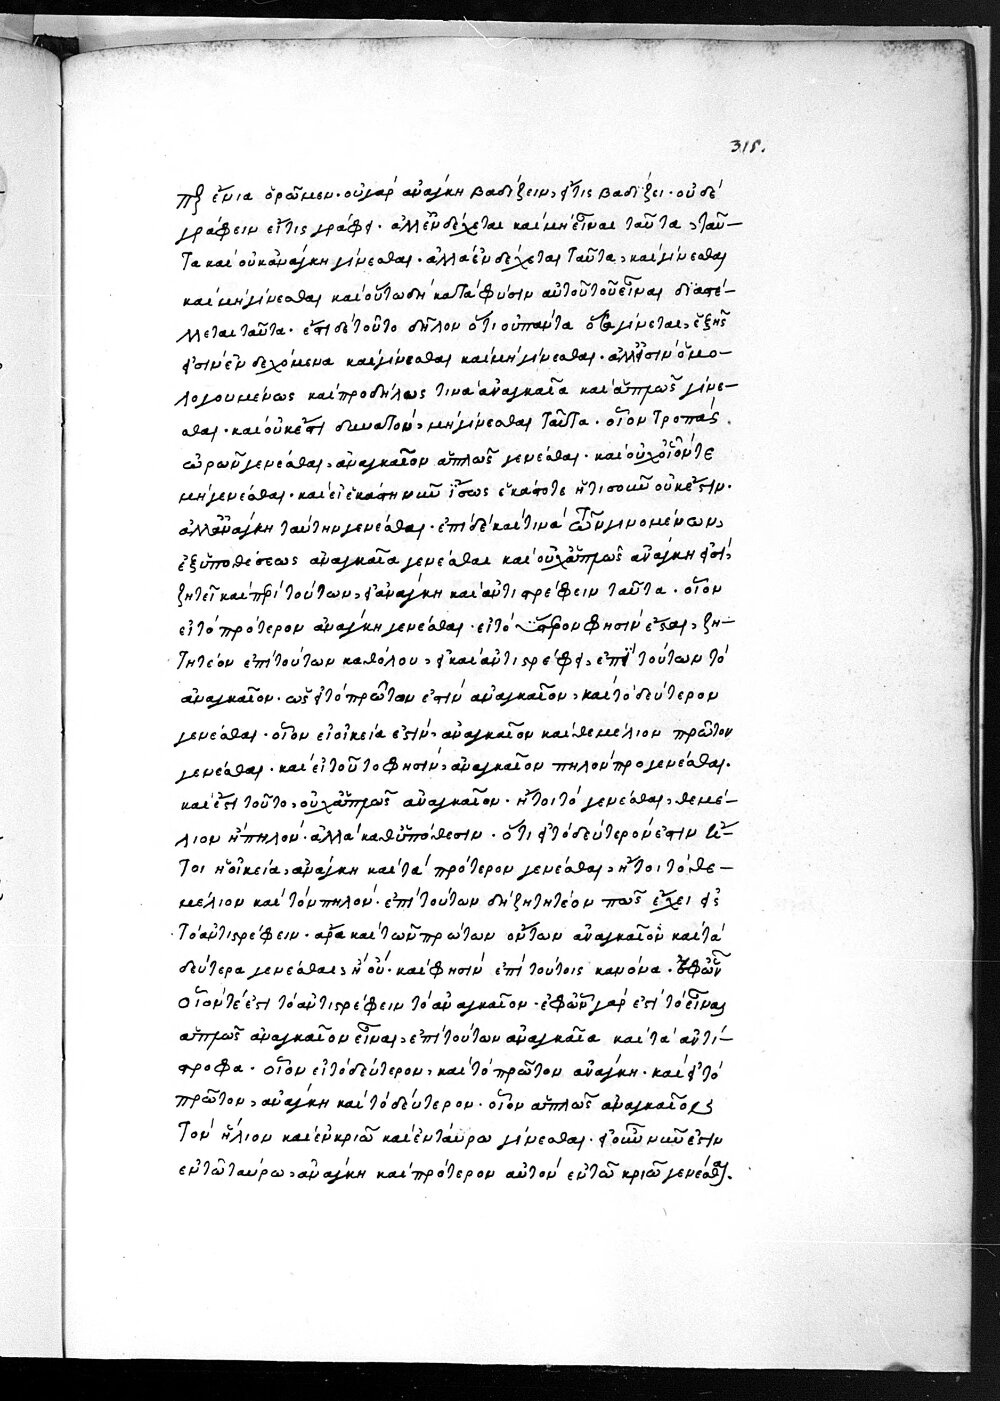 315.
πξ ἔνια ὁρῶμεν· οὐ γὰρ ἀνάγκη βαδίζειν, εἴ τις βαδίζει· οὐδὲ
γράφειν εἴ τις γράφει· ἀλλ' ἐνδέχεται καὶ μὴ εἶναι ταῦτα, ταῦ-
τα καὶ οὐκ ἀνάγκη γίνεσθαι· ἀλλὰ ἐνδέχεται ταῦτα, καὶ γίνεσθαι
καὶ μὴ γίνεσθαι καὶ οὕτω δὴ κατὰ φύσιν αὐτοῦ τοῦ εἶναι διαστέ-
λλεται ταῦτα· ἐπὶ δὲ τοῦτο δῆλον ὅτι οὐ πάντα ὅσα γίνεται, ἑξῆς
εἰσὶν ἐνδεχόμενα καὶ γίνεσθαι καὶ μὴ γίνεσθαι· ἀλλ' εἰσὶν ὁμο-
λογουμένως καὶ προδήλως τινὰ ἀναγκαῖα καὶ ἁπλῶς γίνε-
σθαι· καὶ οὐκ ἔστι δυνατὸν, μὴ γίνεσθαι ταῦτα· οἷον τροπὰς
ὡρῶν γενέσθαι, ἀναγκαῖον ἁπλῶς γενέσθαι· καὶ οὐχ οἷόν τε
μὴ γενέσθαι· καὶ εἰ ἑκάστη νῦν ἴσως ἑκάστοτε ἥτις οὖν οὐκ ἔστιν·
ἀλλ' ἀνάγκη ταύτην γενέσθαι· ἐπὶ δὲ καὶ τινὰ τῶν γινομένων,
ἐξ ὑποθέσεως ἀναγκαῖα γενέσθαι καὶ οὐχ ἁπλῶς ἀνάγκη εἰσί,
ζητεῖ καὶ περὶ τούτων, εἰ ἀνάγκη καὶ ἀντιστρέφειν ταῦτα· οἷον
εἰ τὸ πρότερον ἀνάγκη γενέσθαι· εἰ τὸ ὕστερον φησὶν ἔσται, ζη-
τητέον ἐπὶ τούτων καθόλου, εἰ καὶ ἀντιστρέφει, ἐπὶ τούτων τὸ
ἀναγκαῖον· ὡς εἰ τὸ πρῶτον ἐστὶν ἀναγκαῖον, καὶ τὸ δεύτερον
γενέσθαι· οἷον εἰ οἰκεία ἐστὶν, ἀναγκαῖον καὶ θεμέλιον πρῶτον
γενέσθαι· καὶ εἰ τοῦτο φησὶν, ἀναγκαῖον πηλὸν προγενέσθαι·
καὶ ἔστι τοῦτο, οὐχ ἁπλῶς ἀναγκαῖον· ἤτοι τὸ γενέσθαι, θεμέ-
λιον ἢ πηλὸν· ἀλλὰ καθ' ὑπόθεσιν· ὅτι εἰ τὸ δεύτερον ἐστὶν ἤ-
τοι ἡ οἰκεία, ἀνάγκη καὶ τὰ πρότερον γενέσθαι, ἤτοι τὸ θε-
μέλιον καὶ τὸν πηλὸν· ἐπὶ τούτων δὴ ζητητέον πῶς ἔχει εἰς
τὸ ἀντιστρέφειν· ἆρα καὶ τῶν πρώτων ὄντων ἀναγκαῖον καὶ τὰ
δεύτερα γενέσθαι, ἢ οὔ· καὶ φησὶν ἐπὶ τούτοις κανόνα· ἐφ' ὧν
οἷόν τέ ἐστι τὸ ἀντιστρέφειν τὸ ἀναγκαῖον· ἐφ' ὧν γὰρ ἐστὶ τὸ εἶναι
ἁπλῶς ἀναγκαῖον εἶναι, ἐπὶ τούτων ἀναγκαῖα καὶ τὰ ἀντί-
στροφα· οἷον εἰ τὸ δεύτερον, καὶ τὸ πρῶτον ἀνάγκη· καὶ εἰ τὸ
πρῶτον, ἀνάγκη καὶ τὸ δεύτερον· οἷον ἁπλῶς ἀναγκαῖον
τὸν ἥλιον καὶ ἐν κριῶ καὶ ἐν ταύρω γίνεσθαι· εἰ οὖν νῦν ἐστὶν
ἐν τῶ ταύρω, ἀνάγκη καὶ πρότερον αὐτὸν ἐν τῶ κριῶ γενέσθαι.